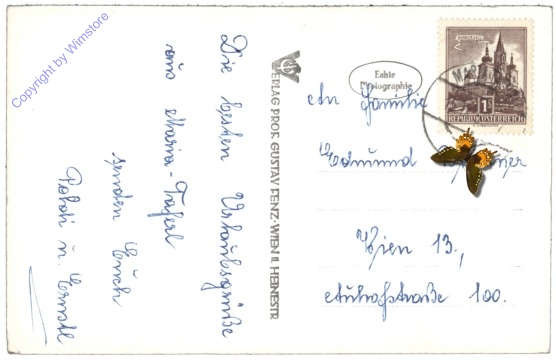 Copyright by Wimstore
Die besten Urlaubsgrüße
aus Maria-Taferl
senden Euch
Poldi u. Ernstl
VERLAG PROF. GUSTAV FENZ·WIEN II. HEINESTR
Echte
Photographie
1S
REPUBLIK ÖSTERREICH
MAR
An Familie
Edmund
Wien 13.,
Auhofstraße 100.